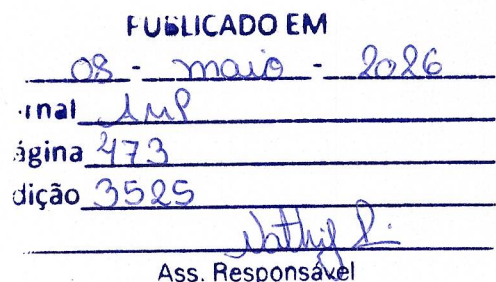 PUBLICADO EM
08 - maio - 2026
rnal AMP
ágina 473
dição 3525
Ass. Responsável